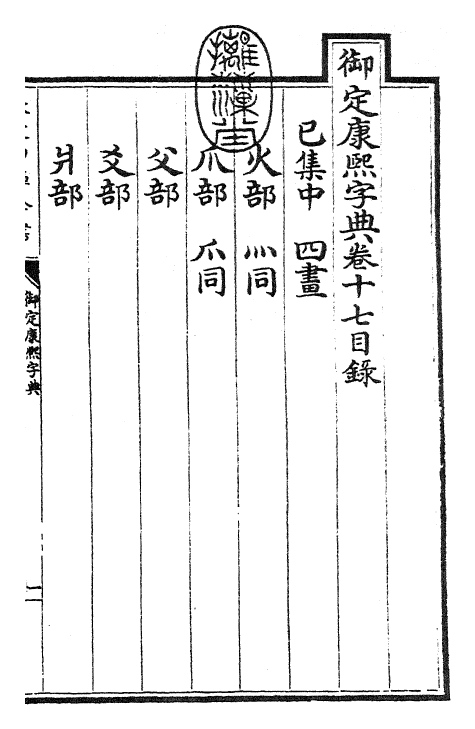 御定康熙字典卷十七目錄
巳集中 四畫
火部 灬同
爪部 爫同
父部
爻部
爿部
御定康熙字典
一